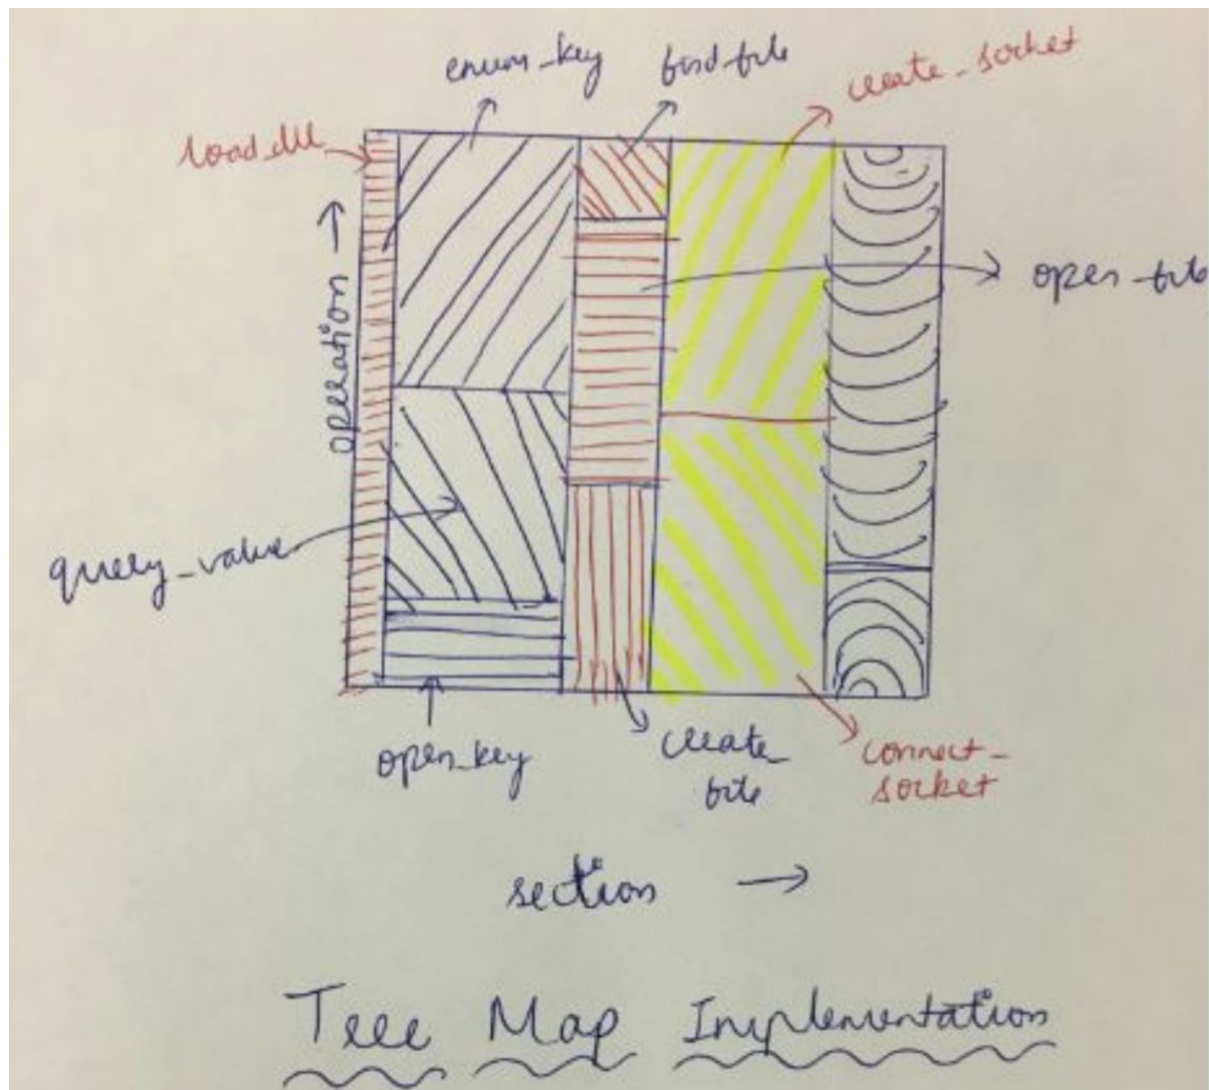 enum_key
find_file
create_socket
load_dll
operation →
open_file
query_value
open_key
create_
file
connect_
socket
section →
Tree Map Implementation